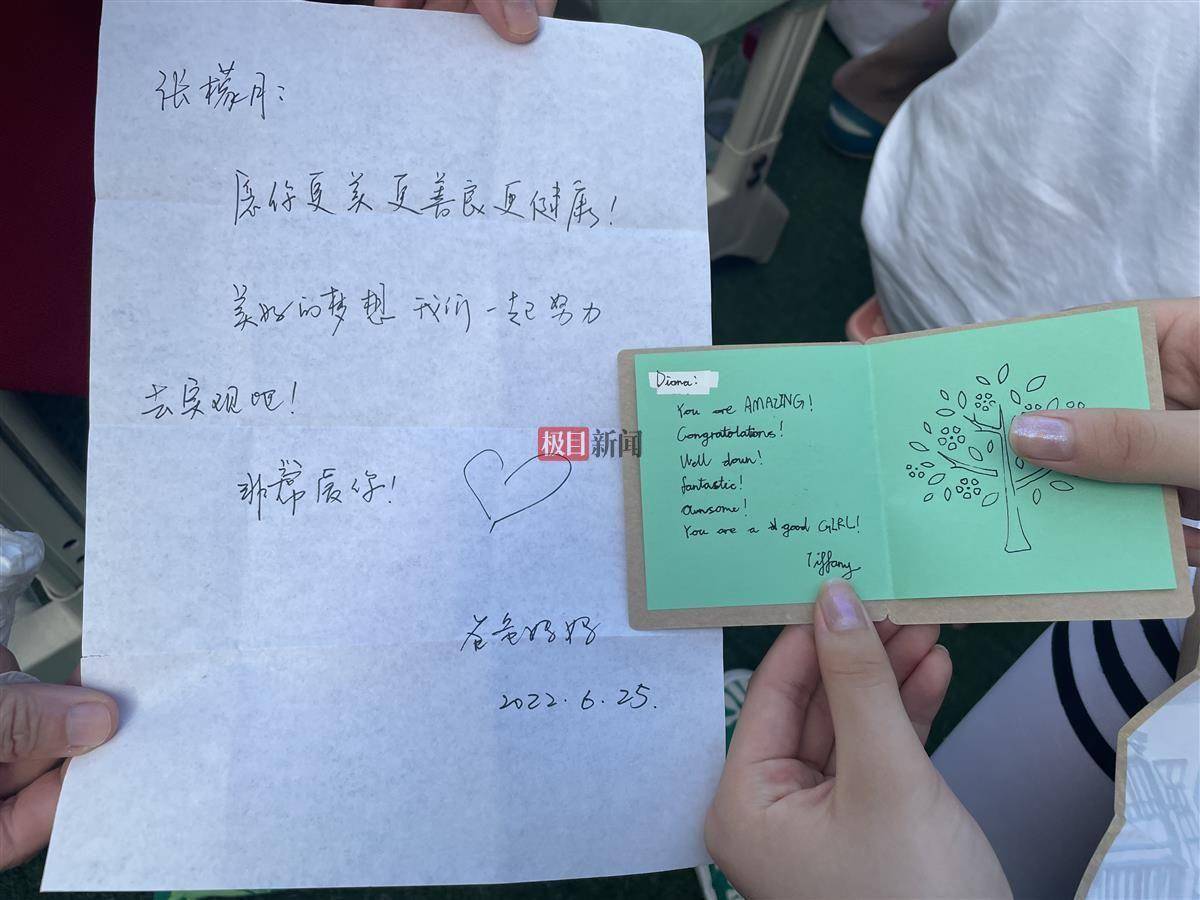 张檬月：
愿你更美更善良更健康！
美好的梦想 我们一起努力
去实现吧！
非常爱你！
爸爸妈妈
2022.6.25.
极目新闻
Diana:
You are AMAZING!
Congratolations!
Well doun!
fantastic!
awnsome!
You are a good GIRL!
Tiffany